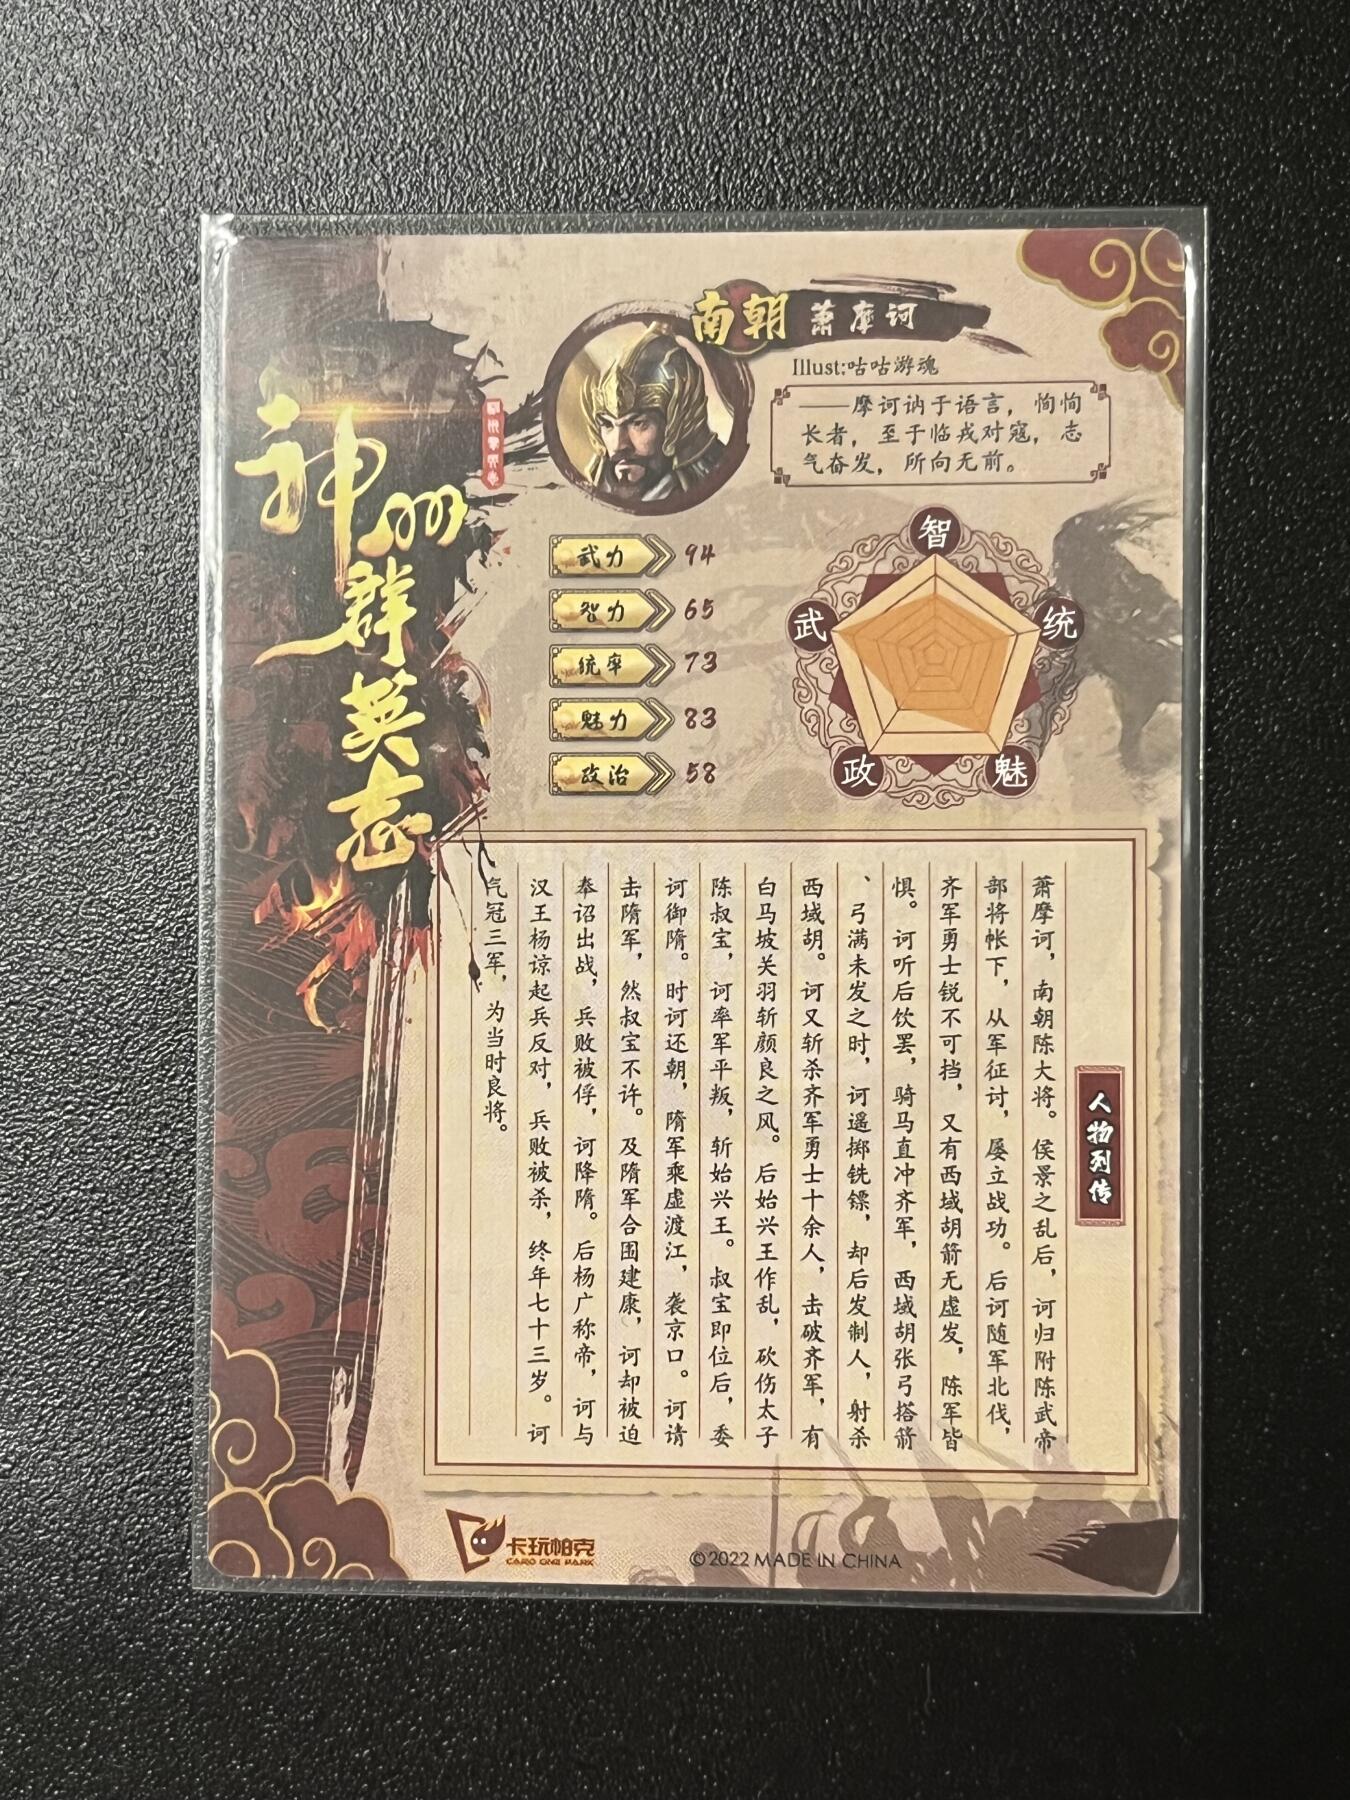 神州群英志
南朝 萧摩诃
Illust:咕咕游魂
——摩诃讷于语言，恂恂
长者，至于临戎对寇，志
气奋发，所向无前。
武力 94
智力 65
统率 73
魅力 83
政治 58
智
武
统
政
魅
人物列传
萧摩诃，南朝陈大将。侯景之乱后，诃归附陈武帝
部将帐下，从军征讨，屡立战功。后诃随军北伐，
齐军勇士锐不可挡，又有西域胡箭无虚发，陈军皆
惧。诃听后饮罢，骑马直冲齐军，西域胡张弓搭箭
、弓满未发之时，诃遥掷铣镖，却后发制人，射杀
西域胡。诃又斩杀齐军勇士十余人，击破齐军，有
白马坡关羽斩颜良之风。后始兴王作乱，砍伤太子
陈叔宝，诃率军平叛，斩始兴王。叔宝即位后，委
诃御隋。时诃还朝，隋军乘虚渡江，袭京口。诃请
击隋军，然叔宝不许。及隋军合围建康，诃却被迫
奉诏出战，兵败被俘，诃降隋。后杨广称帝，诃与
汉王杨谅起兵反对，兵败被杀，终年七十三岁。诃
气冠三军，为当时良将。
卡玩帕克
CARD ONE PARK
©2022 MADE IN CHINA